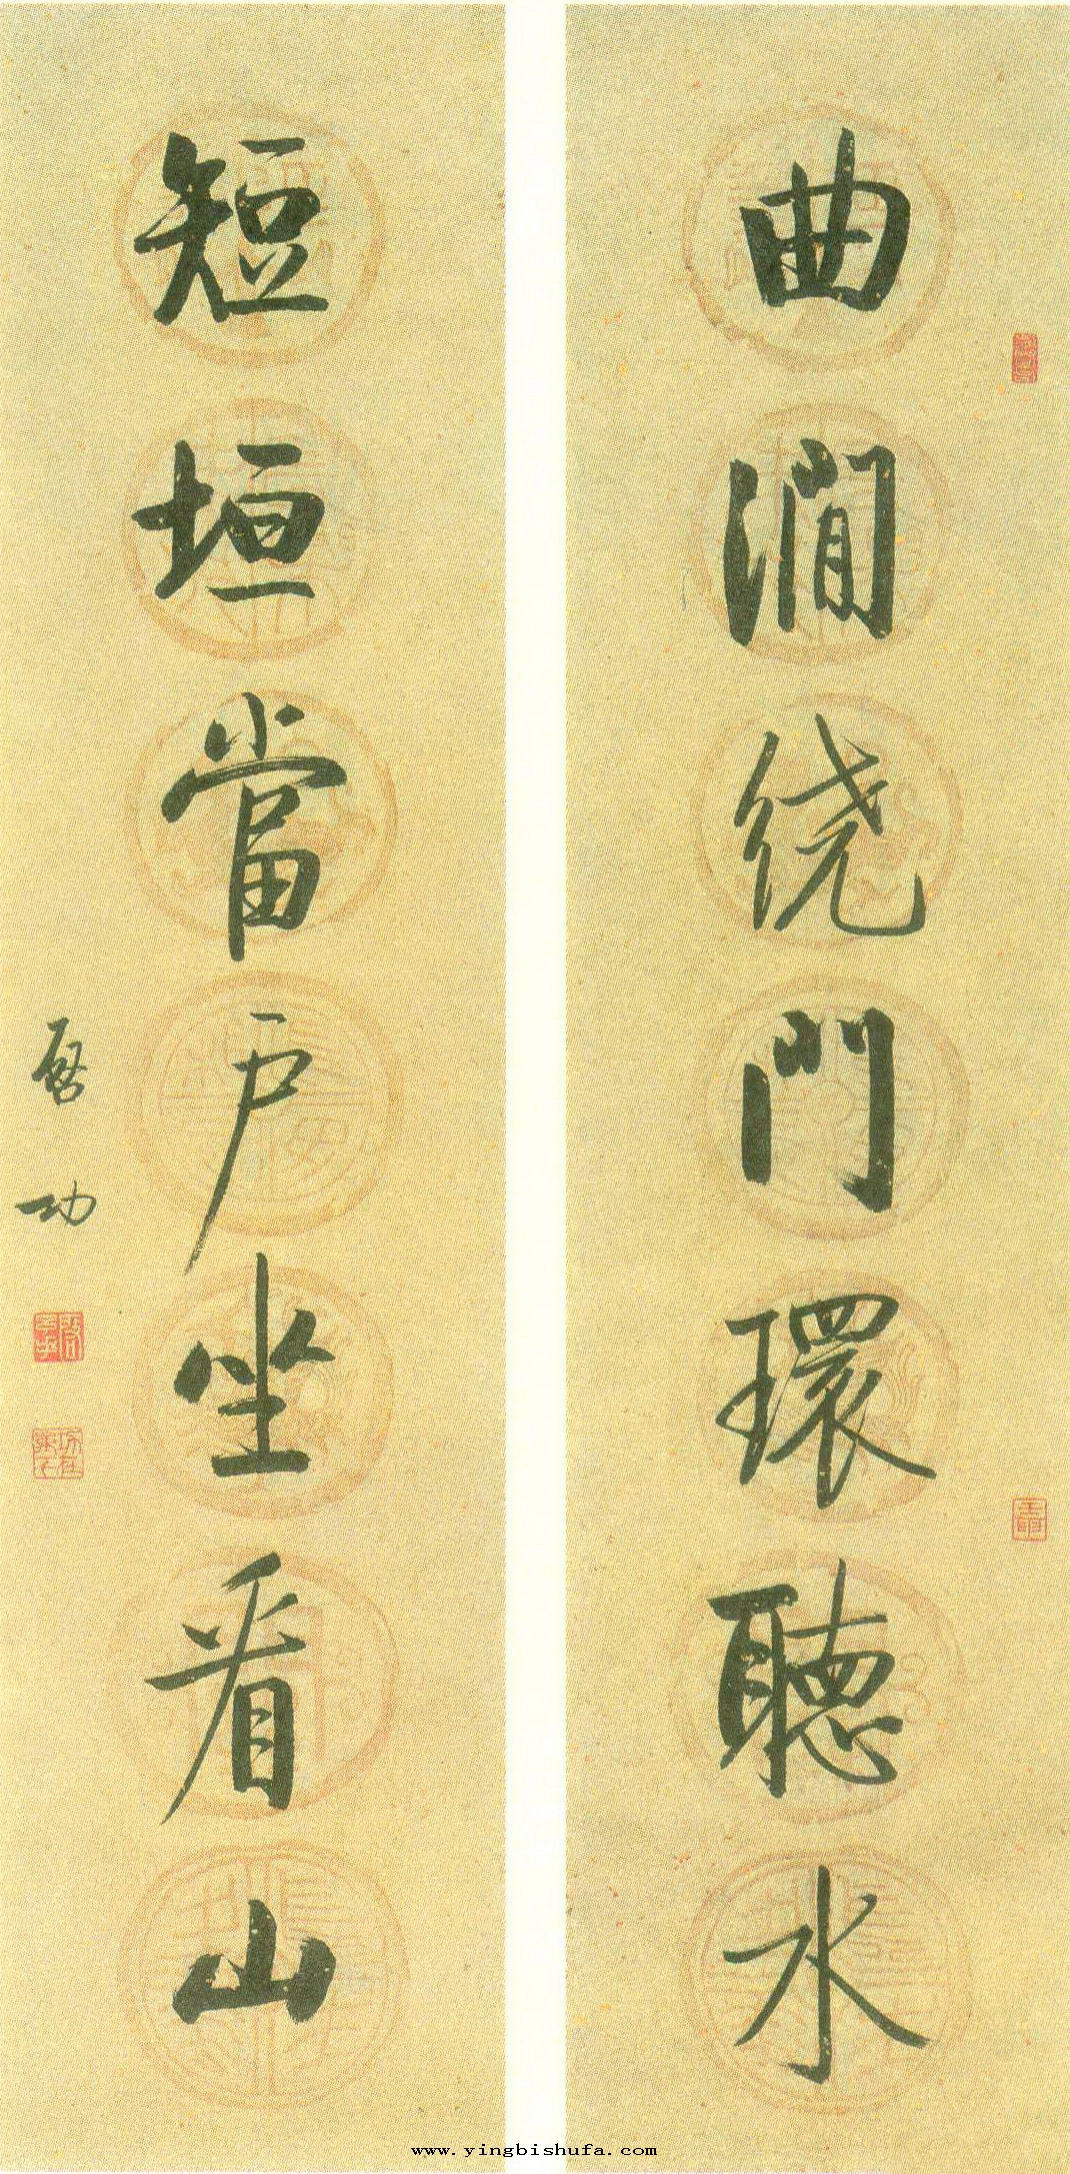 曲澗绕門環聽水
短垣當户坐看山
启功
www.yingbishufa.com